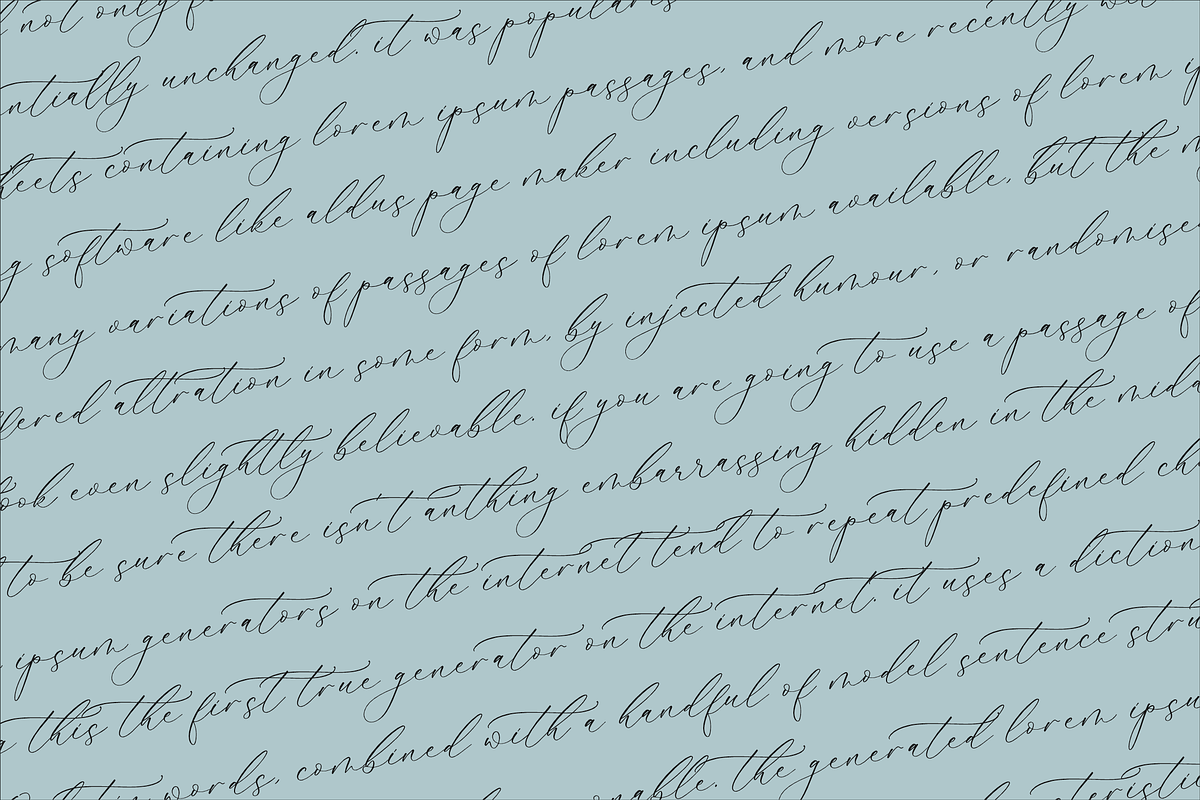 not only
unchanged. it was
containing lorem ipsum passages, and more recently
software like aldus page maker including versions of lorem
many variations of passages of lorem ipsum available, but the
attration in some form, by injected humour, or
even slightly believable. if you are going to use a passage of
to be sure there isn't anthing embarrassing hidden in the
ipsum generators on the internet tend to repeat predefined
this the first true generator on the internet. it uses a
words, combined with a handful of model sentence
the generated lorem